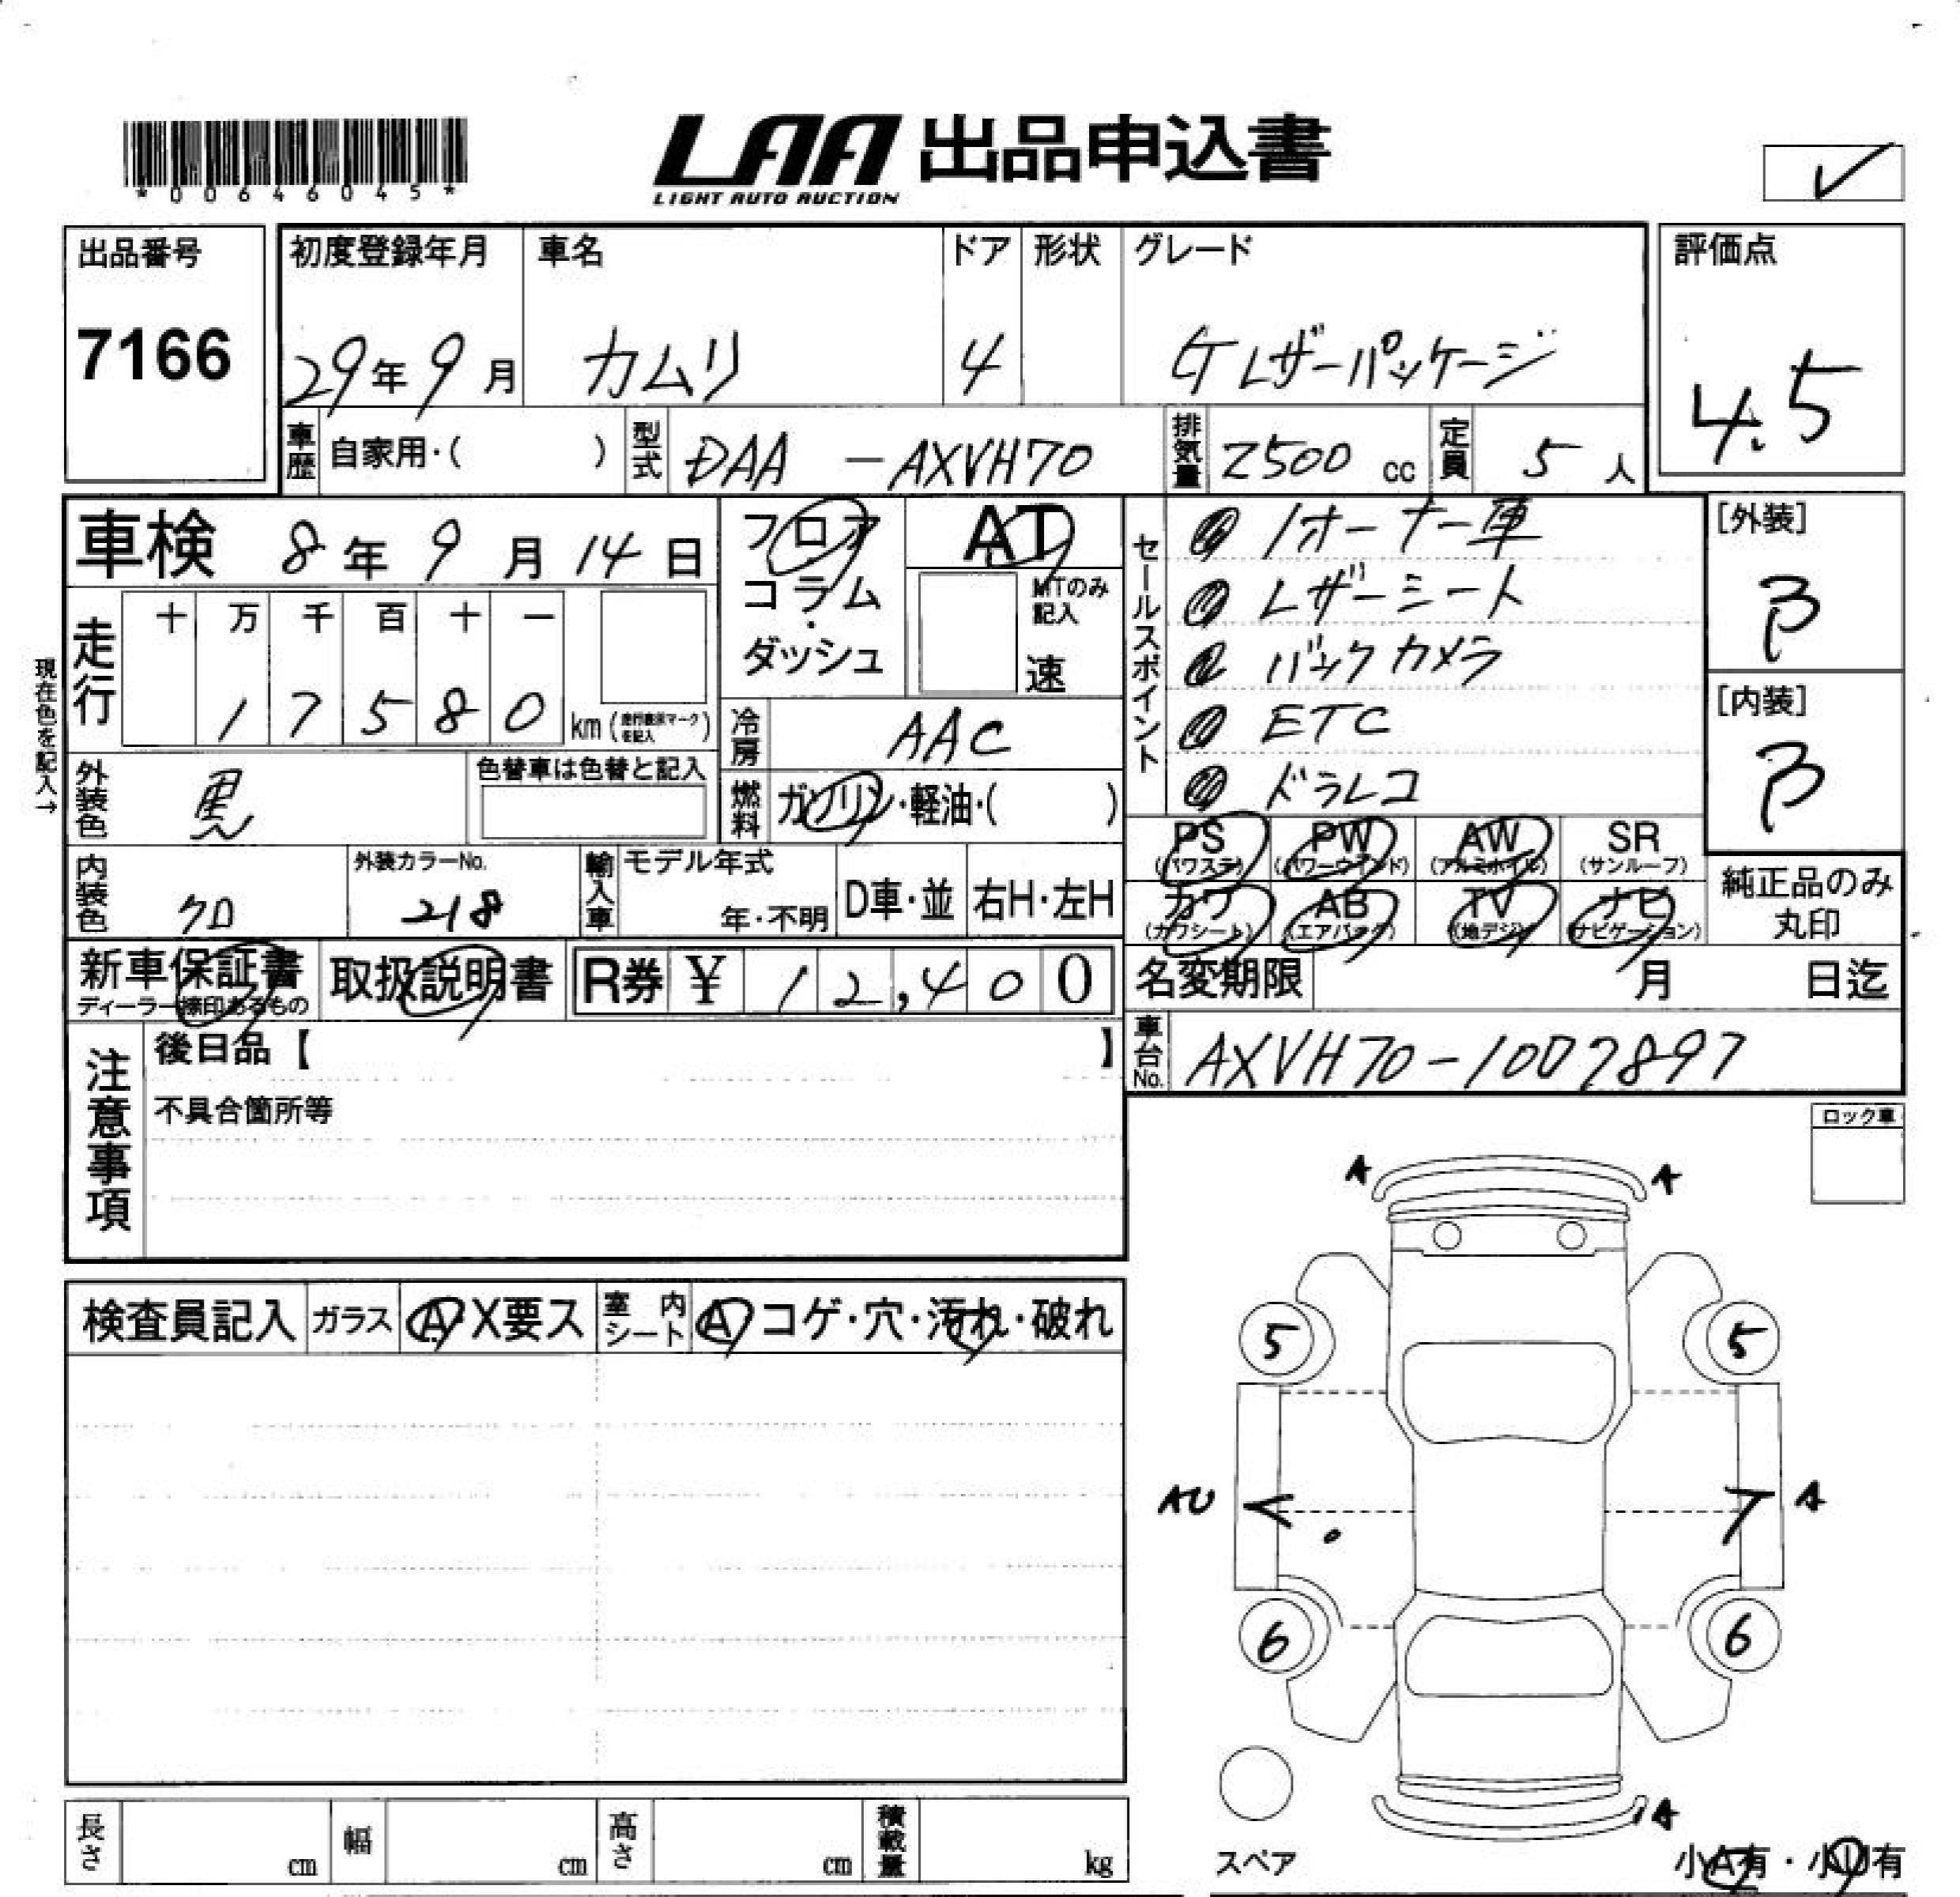 *00646045*
LAA 出品申込書
LIGHT AUTO AUCTION
✓
出品番号 初度登録年月 車名 ドア 形状 グレード 評価点
7166 29年9月 カムリ 4 Gレザーパッケージ 4.5
車歴 自家用・( ) 型式 DAA -AXVH70 排気量 2500 cc 定員 5 人
車検 8年9月14日 フロア AT セールスポイント 1オーナー車 [外装]
コラム MTのみ記入 レザーシート B
現在色を記入→ 走行 十 万 千 百 十 一 ・ダッシュ 速 バックカメラ [内装]
17580 km (走行表示マークを記入) 冷房 AAC ETC B
外装色 黒 色替車は色替と記入 燃料 ガソリン・軽油・( ) ドラレコ
PS (パワステ) PW (パワーウインド) AW (アルミホイル) SR (サンルーフ)
内装色 クロ 外装カラーNo. 218 輸入車 モデル年式 年・不明 D車・並 右H・左H カワ (カワシート) AB (エアバッグ) TV (地デジ) ナビ (ナビゲーション) 純正品のみ丸印
新車保証書 取扱説明書 R券 ¥ 12,400 名変期限 月 日迄
ディーラー捺印あるもの
注意事項 後日品【 】 車台No. AXVH70-1007897
不具合箇所等 ロック車
A A
検査員記入 ガラス A・X要ス 室内シート A コゲ・穴・汚れ・破れ
5 5
AU A
6 6
A
長さ cm 幅 cm 高さ cm 積載量 kg スペア 小A有・小U有